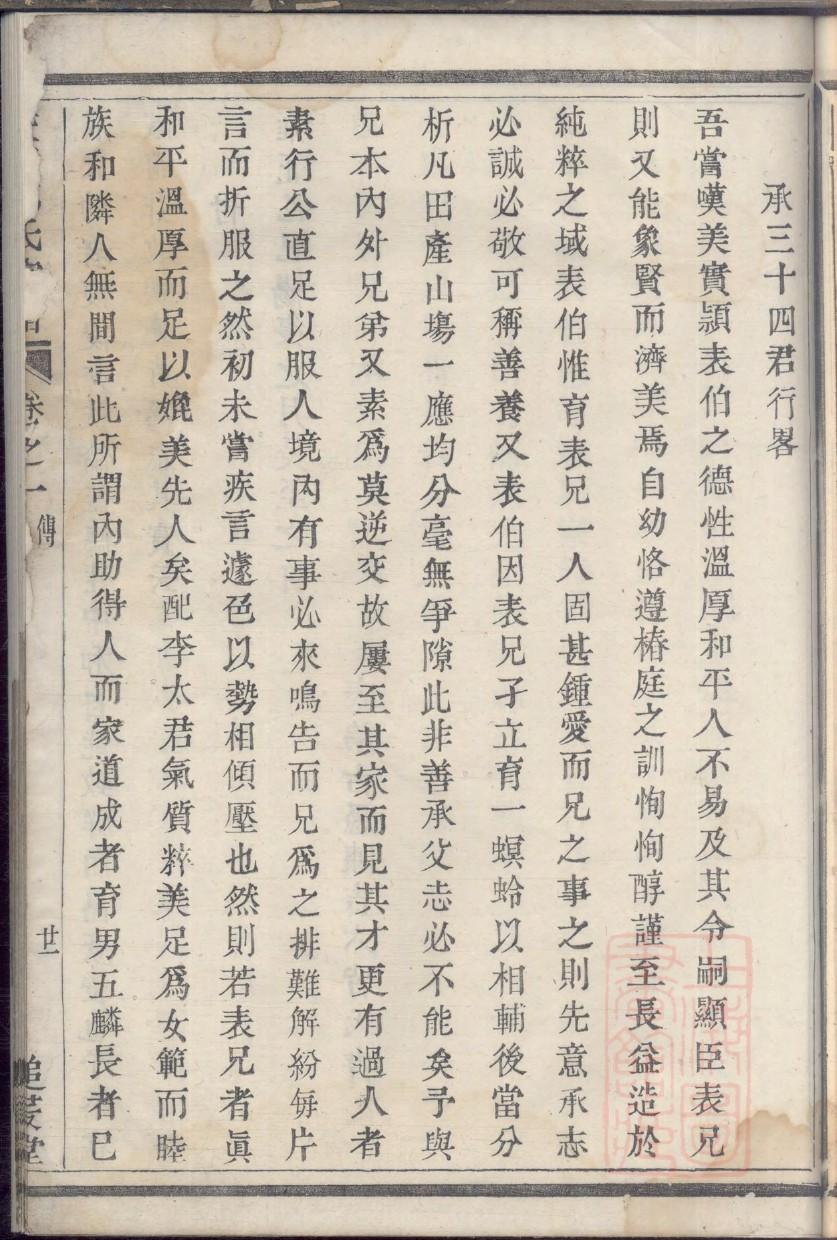 承三十四君行畧
吾嘗嘆美實頴表伯之德性溫厚和平人不易及其令嗣顯臣表兄
則又能象賢而濟美焉自幼恪遵椿庭之訓恂恂醇謹至長益造於
純粹之域表伯惟育表兄一人固甚鍾愛而兄之事之則先意承志
必誠必敬可稱善養又表伯因表兄孑立育一螟蛉以相輔後當分
析凡田產山塲一應均分毫無爭隙此非善承父志必不能矣予與
兄本內外兄弟又素爲莫逆交故屢至其家而見其才更有過人者
素行公直足以服人境內有事必來鳴告而兄爲之排難解紛每片
言而折服之然初未嘗疾言遽色以勢相傾壓也然則若表兄者眞
和平溫厚而足以媲美先人矣配李太君氣質粹美足爲女範而睦
族和隣人無間言此所謂內助得人而家道成者育男五麟長者已
氏
卷之一
傳
廿一
追遠堂